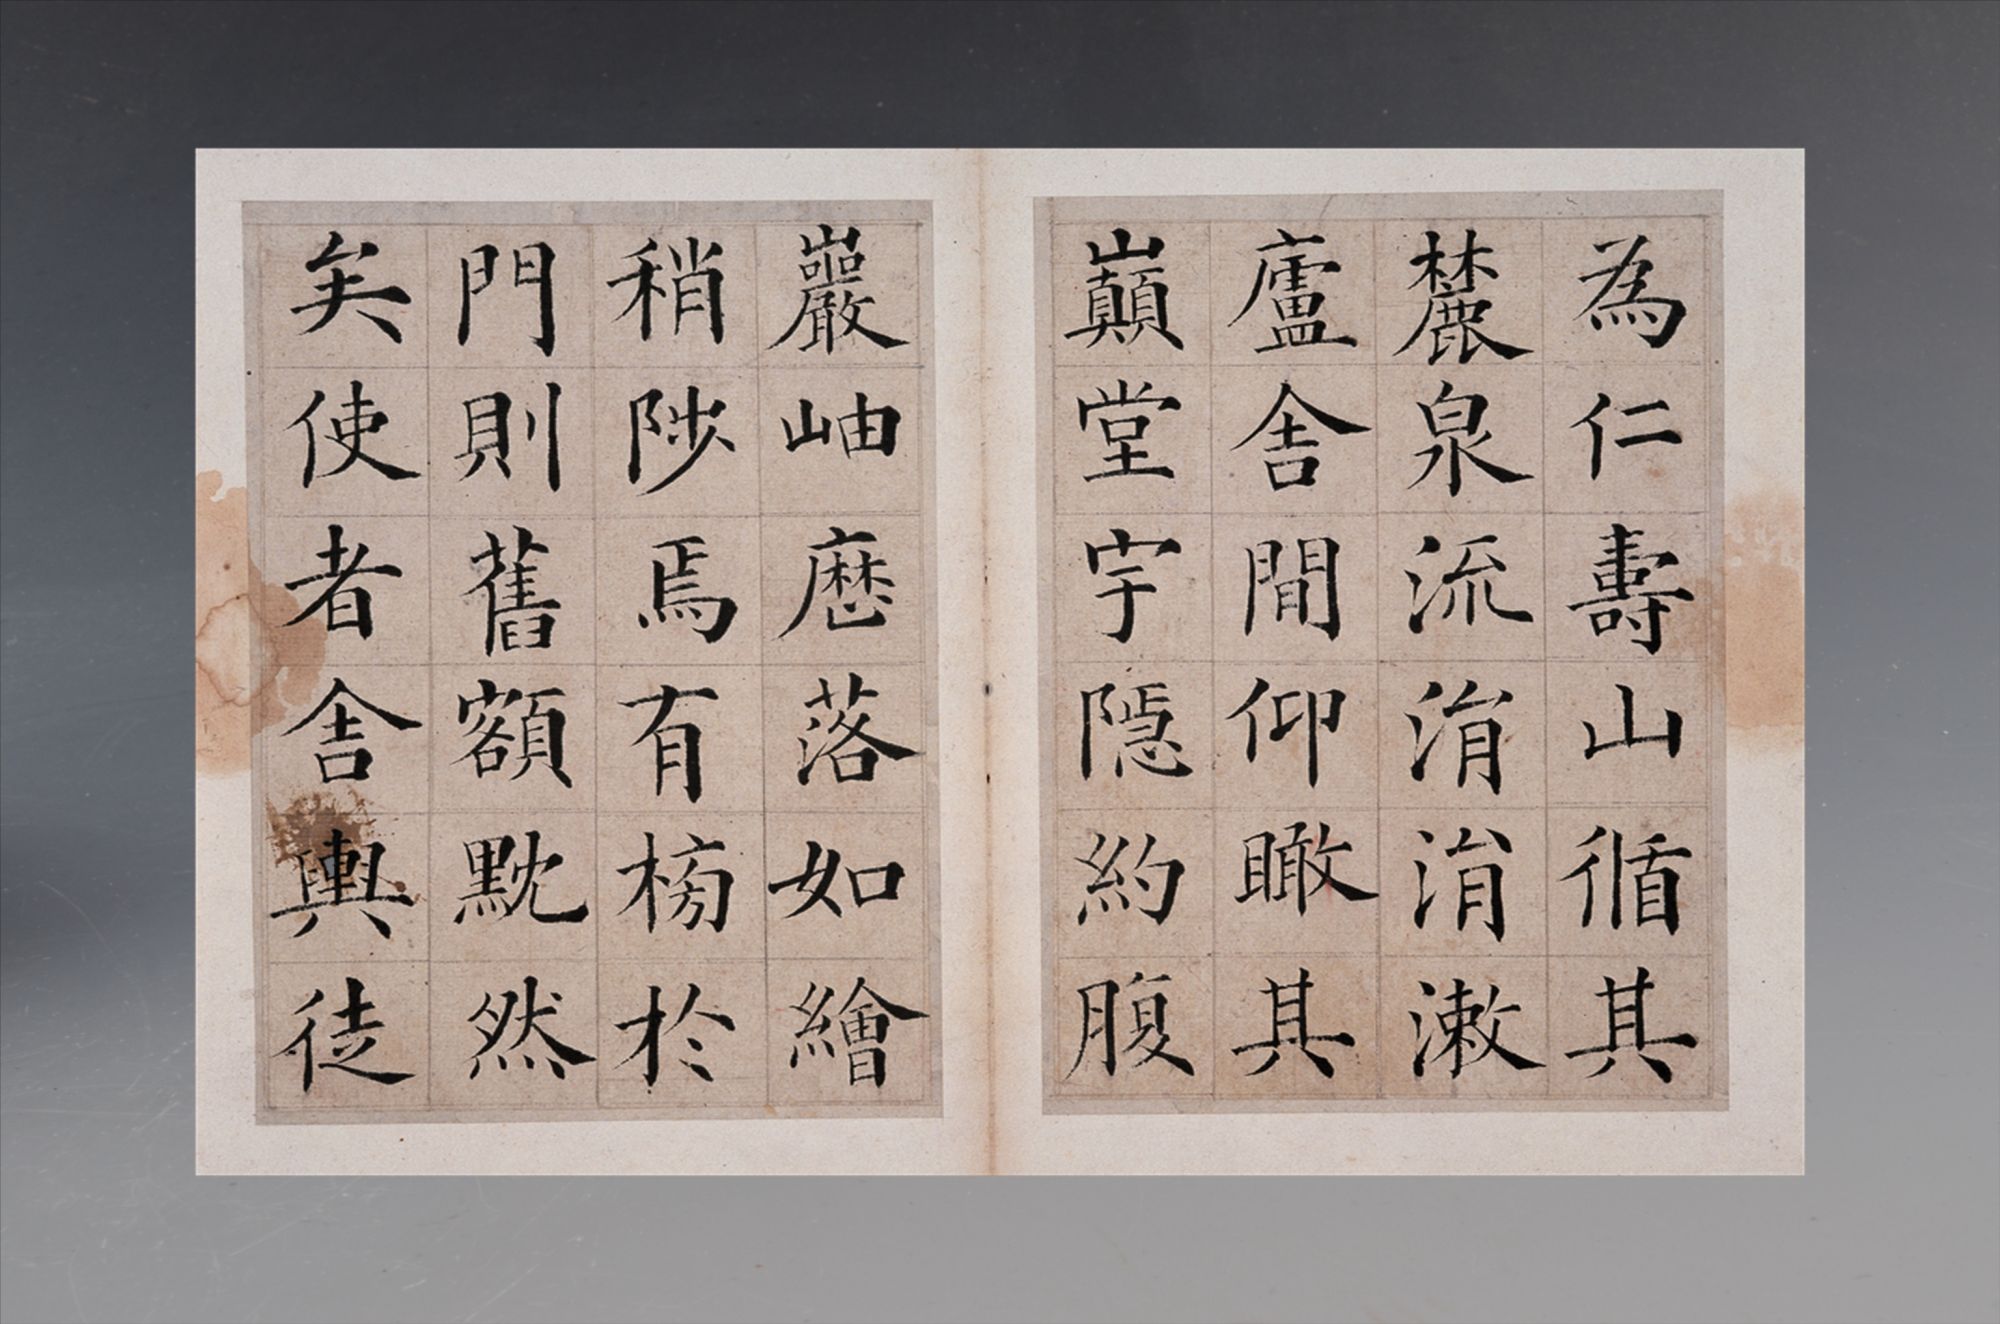 為仁壽山循其
麓泉流湑湑漱
廬舍間仰瞰其
巔堂宇隱約腹
巖岫歷落如繪
稍陟焉有榜於
門則舊額黕然
矣使者舍輿徒